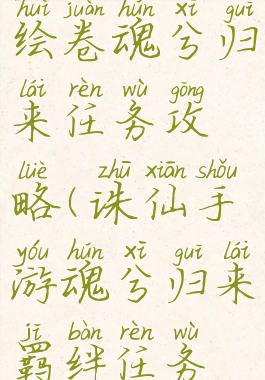 huì juàn hún xī guī
绘卷魂兮归
lái rèn wù gōng
来任务攻
lüè zhū xiān shǒu
略(诛仙手
yóu hún xī guī lái
游魂兮归来
jī bàn rèn wù
羁绊任务